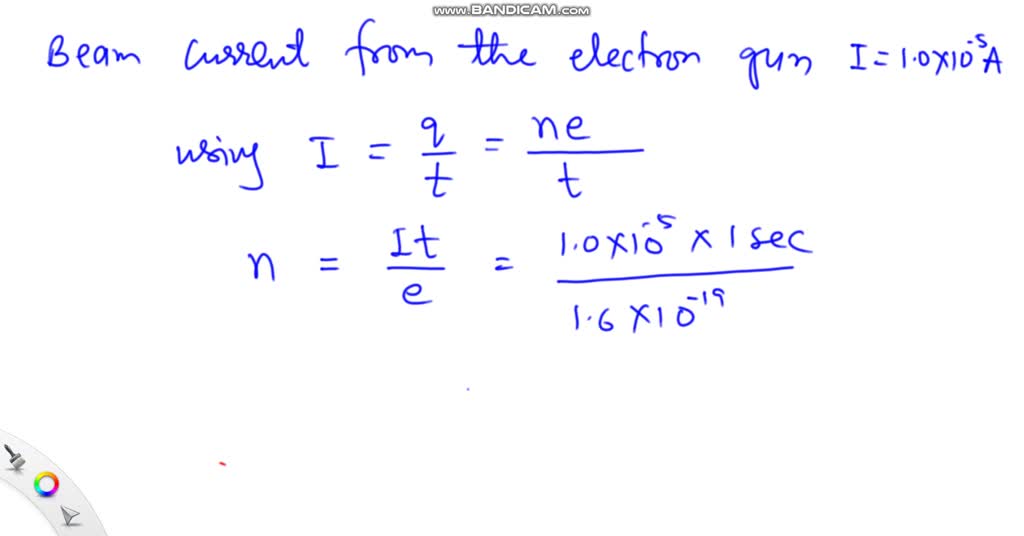 www.BANDICAM.com
Beam current from the electron gun I = 1.0×10⁻⁵A
using I = q/t = ne/t
n = It/e = 1.0×10⁻⁵ × 1 sec / 1.6×10⁻¹⁹